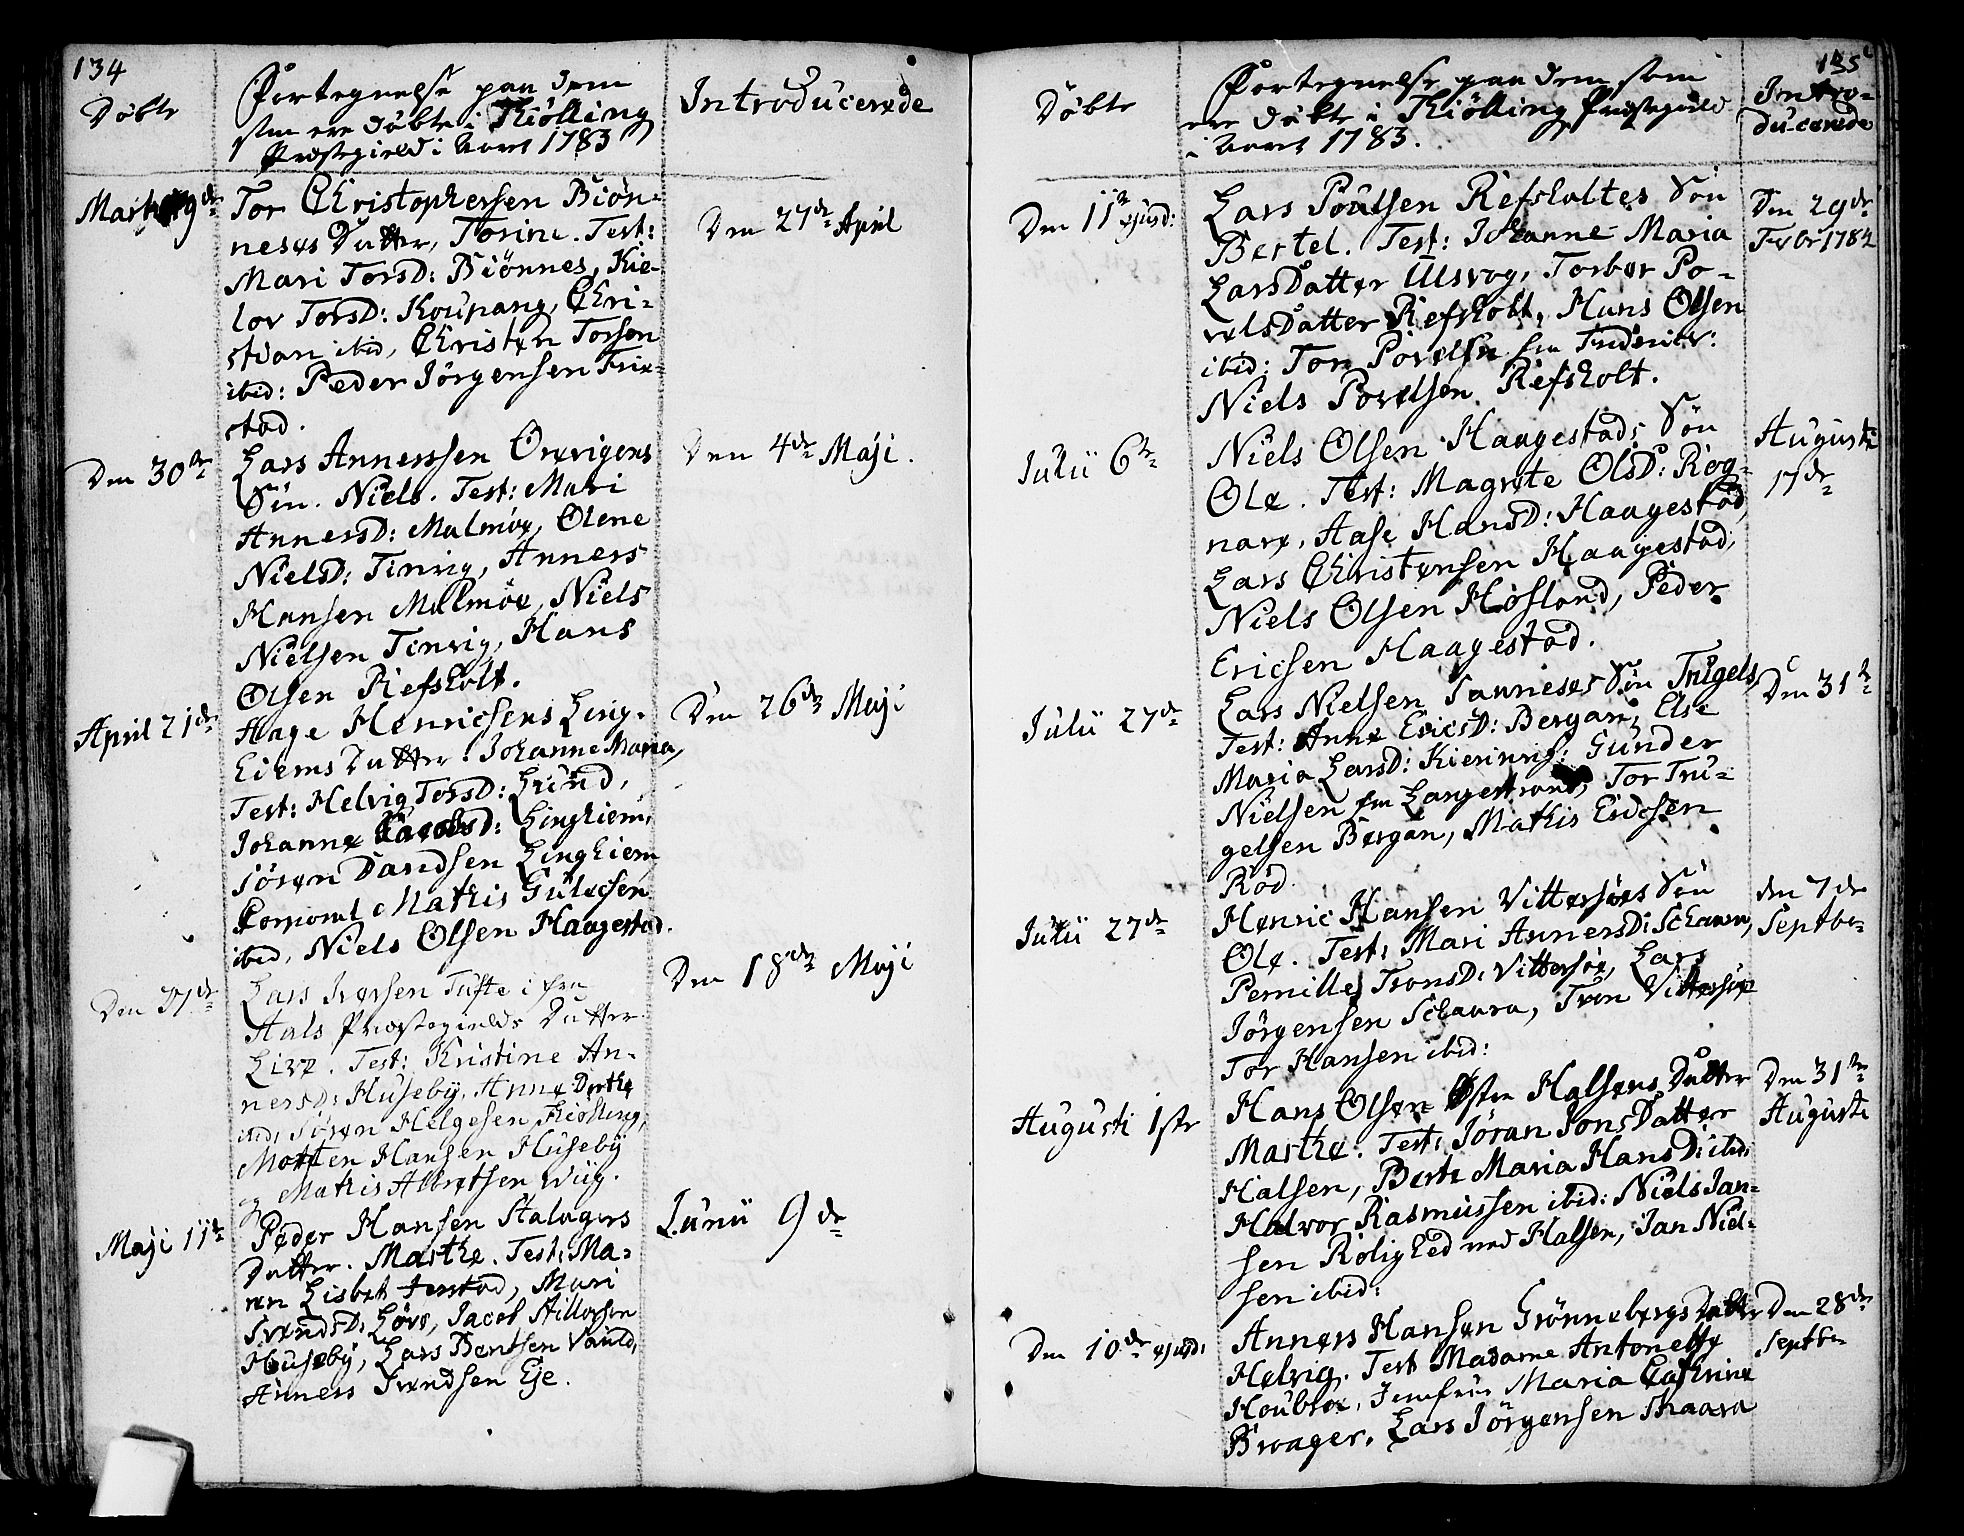 134
Døbte
Fortegnelse paa dem
som ere døbte i Kiølling
Præstegield i Aaret 1783
Introducerede
Martii 9de
Tor Christophersen Biøn-
neses Datter, Torine. Test:
Mari Torsd: Biønnes, Kie-
lov Torsd: Koupang, Chri-
stian ibid, Christen Torsen
ibid: Peder Jørgensen Frix-
stad.
Den 27de April
Den 30te
Lars Annerssen Orevigens
Søn. Niels. Test: Mari
Annersd: Malmøe, Olene
Nielsd: Tinvig, Anners
Hansen Malmøe, Niels
Nielsen Tinvig, Hans
Olsen Refsholt.
Den 4de Maji.
April 21de
Aage Henricsens Ling-
Eiems Datter. Johanne Maria,
Test: Helvig Torsd: Lund,
Johanne Jacobsd: Linghiem,
Søren Davidsen Linghiem
Corporal Mathis Gulicsen
ibid, Niels Olsen Haagestad.
Den 26de Maji
Den 27de
Lars Iversen Tufte i fra
Hals Præstegields Datter
Live. Test: Kristine An-
nersd: Huseby, Anne Dorthe
ibid, Søren Helgesen Kiølling,
Morten Hansen Huseby
og Mathis Albretsen Wiig.
Den 18de Maji
Maji 11te
Peder Hansen Stalagers
Datter. Marthe. Test: Ma-
ren Lisbet Jerstad, Mari
Svendsd: Løve, Jacob Hillersen
Huseby, Lars Bentsen Vauld,
Anners Svendsen Eje.
Junii 9de
135
Døbte
Fortegnelse paa dem som
ere døbte i Kiølling Præstegield
i Aaret 1783.
Intro-
ducerede
Den 11te ejusd:
Lars Poulsen Refsholtes Søn
Bertel. Test: Johanne Maria
Larsdatter Ulsvog, Torber Po-
velsdatter Refsholt, Hans Olsen
ibid: Tor Povelsen fra Fridericv:
Niels Povelsen Refsholt.
Den 29de
Febr 1784
Julii 6te
Niels Olsen Haagestads Søn
Ole. Test: Magrete Olsd: Rog-
nare, Aase Hansd: Haagestad,
Lars Christensen Haagestad,
Niels Olsen Høsland, Peder
Ericsen Haagestad.
Augusti
17de
Julii 27de
Lars Nielsen Sannieses Søn Trugels,
Test: Anne Ericsd: Bergan, Else
Maria Larsd: Kierinvig: Gunder
Nielsen fra Langestrand, Tor Tru-
gelsen Bergan, Mathis Ericsen
Rød.
Den 31te
Julii 27de
Henric Hansen Vittersøes Søn
Ole. Test: Mari Annersd: Schaura,
Pernille Tronsd: Vittersøe, Lars
Jørgensen Schaura, Tron Vittersøe
Tor Hansen ibid:
den 7de
Septbr
Augusti 1ste
Hans Olsen Østen Halsens Datter
Marthe. Test: Jøran Jonsdatter
Halsen, Berte Maria Hansd: ibid:
Halvor Rasmussen ibid: Niels Jan-
sen Roligheed ved Halsen, Jan Niel-
sen ibid:
Den 31te
Augusti
Den 10de ejusd:
Anners Hansen Grønnebergs Datter
Helvig. Test Madame Antonette
Houbroe, Jomfrue Maria Cathrine
Brager, Lars Jørgensen Skaara
Den 28de
Septbr